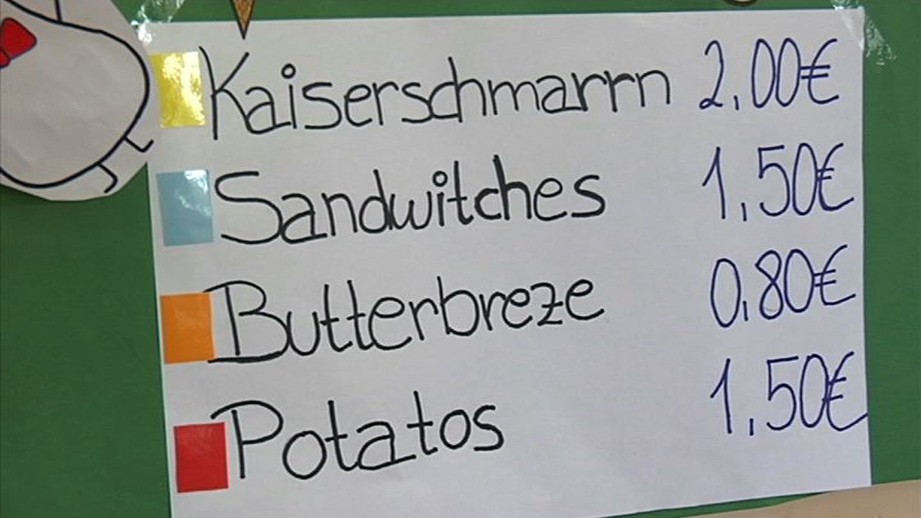 Kaiserschmarrn 2,00€
Sandwitches 1,50€
Butterbreze 0,80€
Potatos 1,50€